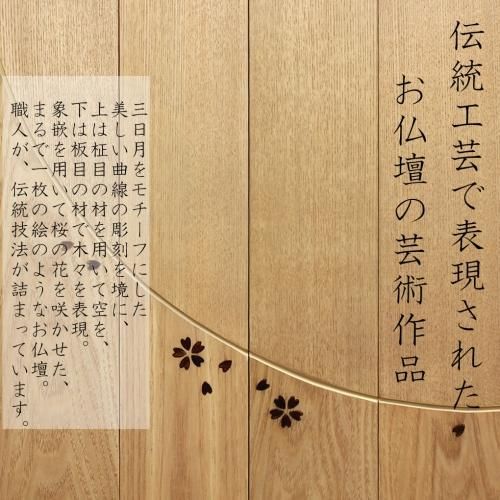 伝統工芸で表現された
お仏壇の芸術作品
三日月をモチーフにした
美しい曲線の彫刻を境に、
上は柾目の材を用いて空を、
下は板目の材で木々を表現。
象嵌を用いて桜の花を咲かせた、
まるで一枚の絵のようなお仏壇。
職人が、伝統技法が詰まっています。